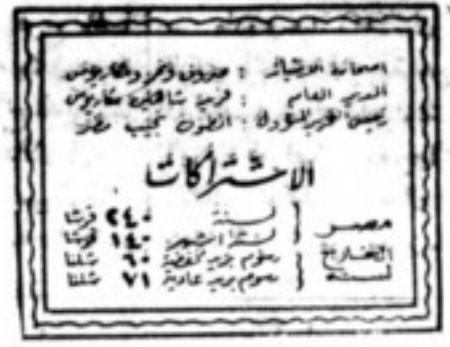 اصحاب الامتياز : فوزي وكارلوس
المدير العام : فريد شاهين مكاريوس
رئيس التحرير المسؤول : انطون نجيب مطر
الاشتراكات
مصر { لسنة ٢٤٠ قرشا
لستة اشهر ١٤٠ قرشا
الخارج لسنة { رسوم بريد مخفضة ٦٠ شلنا
رسوم بريد عادية ٧١ شلنا